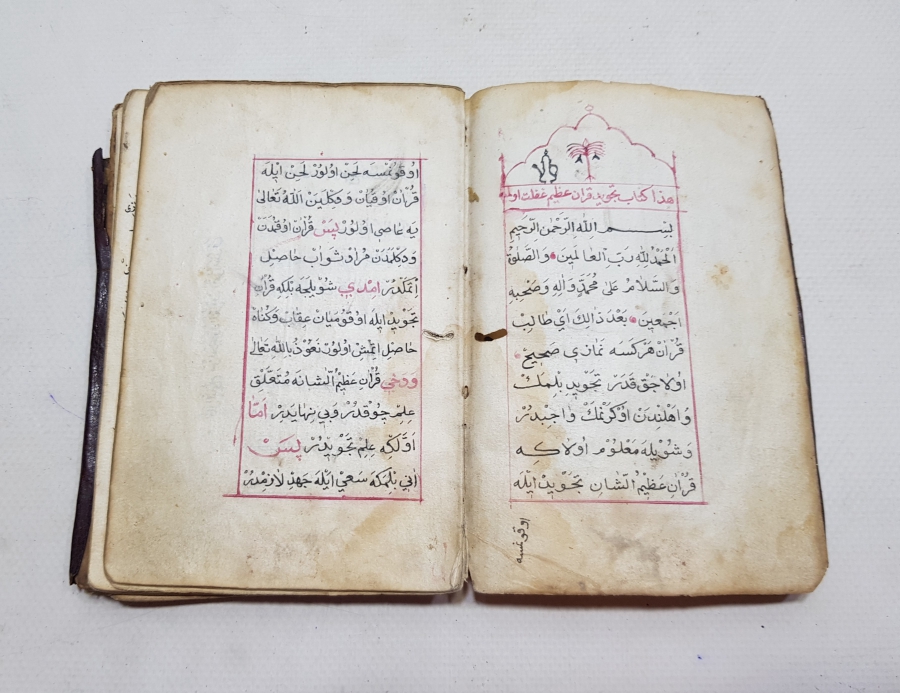 هذا كتاب تجويد قران عظيم غفلت اولنه
بِسْمِ اللهِ الرَّحْمٰنِ الرَّحِيمِ
اَلْحَمْدُ لِلّٰهِ رَبِّ الْعَالَمِينَ وَالصَّلٰوةُ
وَالسَّلَامُ عَلٰى مُحَمَّدٍ وَاٰلِهِ وَصَحْبِهِ
اَجْمَعِينَ بَعْدَ ذَالِكَ اَيْ طَالِبِ
قُرْاٰنْ هَرْكَسَه نَمَازِي صَحِيحْ
اُولَاجَقْ قَدَرْ تَجْوِيدِ بِلْمَكْ
وَاَهْلِنْدَنْ اُوكْرَنْمَكْ وَاجِبْدُرْ
وَشُويْلَه مَعْلُومْ اُولَاكِه
قُرْاٰنِ عَظِيمُ الشَّانِ تَجْوِيدْ اِيلَه
اوقونمسه
اُوقُونْمَسَه لَحِنْ اُولُورْ لَحِنْ اِيلَه
قُرْاٰنْ اُوقُيَانْ وَدِكْلَيَنْ اَللهُ تَعَالٰى
يَه عَاصِي اُولُورْ پَسْ قُرْاٰنْ اُوقُمَدَنْ
وَدِكْلَمَدَنْ مُرَادْ ثَوَابْ حَاصِلْ
اِتْمَكْدُرْ اِمْدِي شُويْلَجَه بِلَكِه قُرْاٰنِ
تَجْوِيدْ اِيلَه اُوقُومَيَانْ عِقَابْ وَكُنَاهْ
حَاصِلْ اِتْمِشْ اُولُورْ نَعُوذُ بِاللهِ تَعَالٰى
وَدَخِي قُرْاٰنِ عَظِيمُ الشَّانَه مُتَعَلِّقْ
عِلِمْ چُوقْدُرْ وَبِي نِهَايَدِرْ اَمَّا
اَوَّلْكِه عِلْمِ تَجْوِيدْدُرْ پَسْ
اَنِي بِلْمَكَه سَعِي اِيلَه جَهِدْ لَازِمْدُرْ